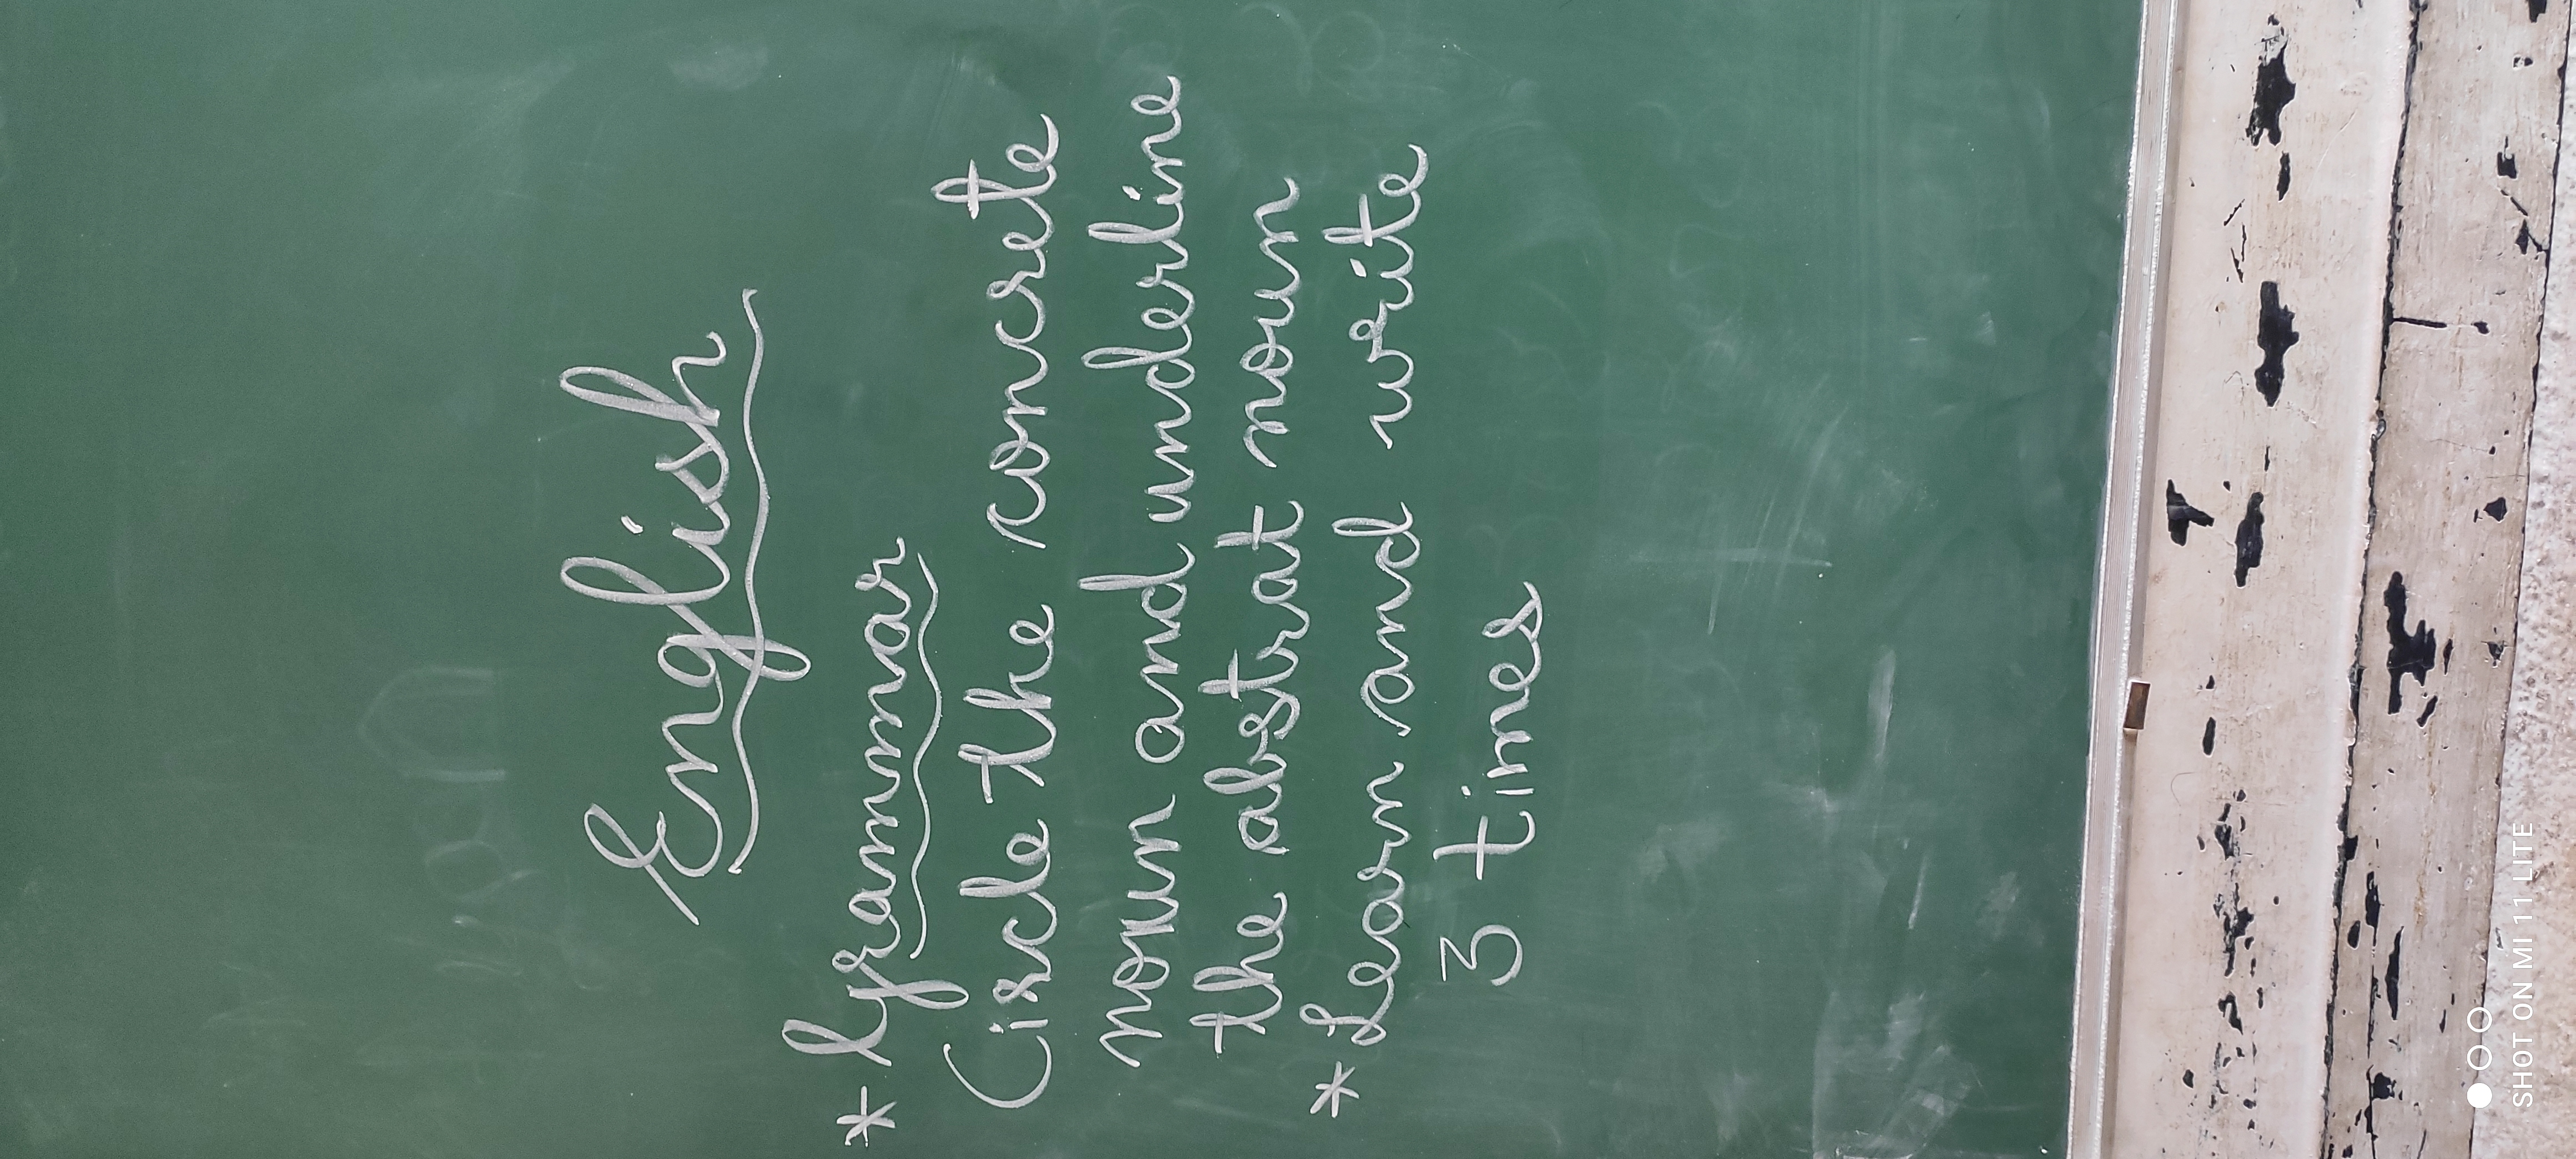 English
* Grammar
Circle the concrete
noun and underline
the abstrat noun
* Learn and write
3 times
SHOT ON MI 11 LITE